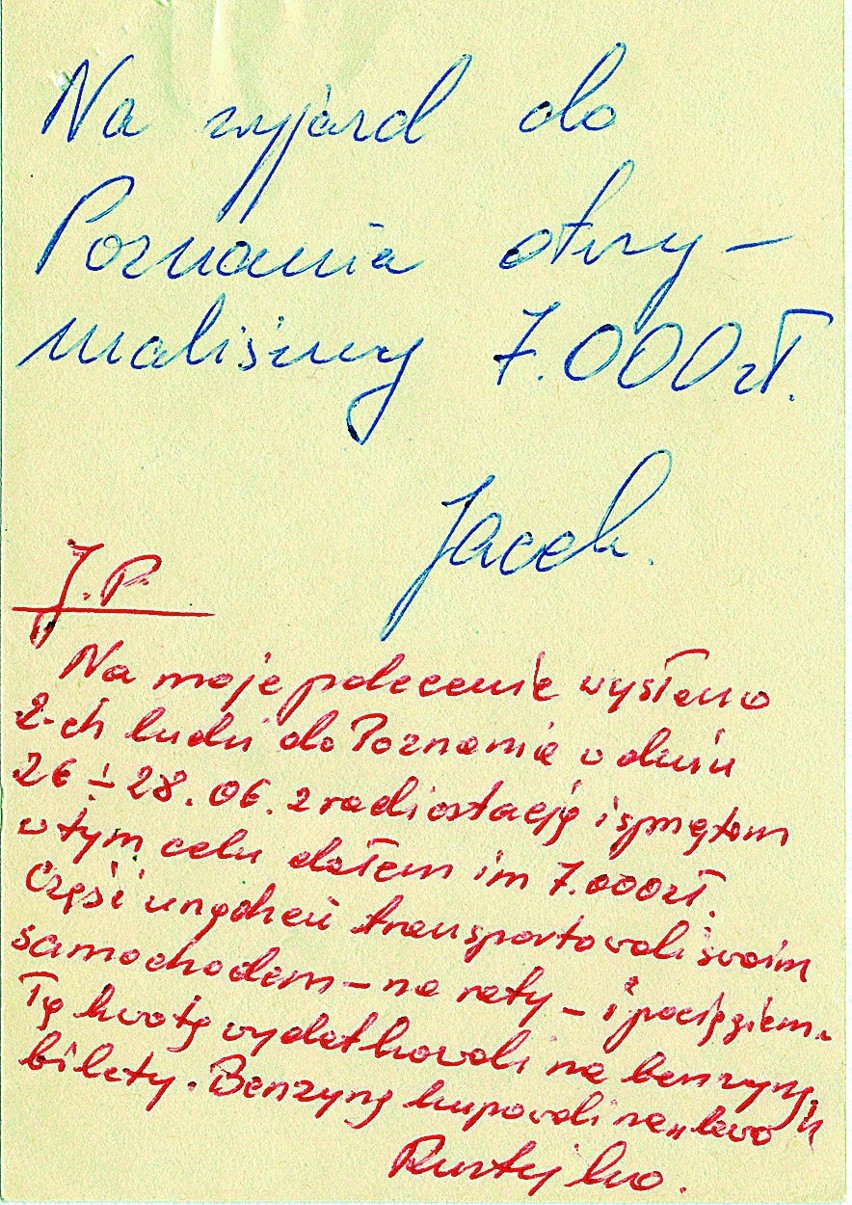 Na wyjazd do
Poznania otrzy-
maliśmy 7.000 zł.
Jacek.
J.P.
Na moje polecenie wysłano
2-ch ludzi do Poznania w dniu
26 ÷ 28.06. z radiostacją i sprzętem
w tym celu dałem im 7.000 zł.
Część urządzeń transportowali swoim
samochodem – na raty – i pociągiem.
Tę kwotę wydatkowali na benzynę i
bilety. Benzynę kupowali na „lewo"